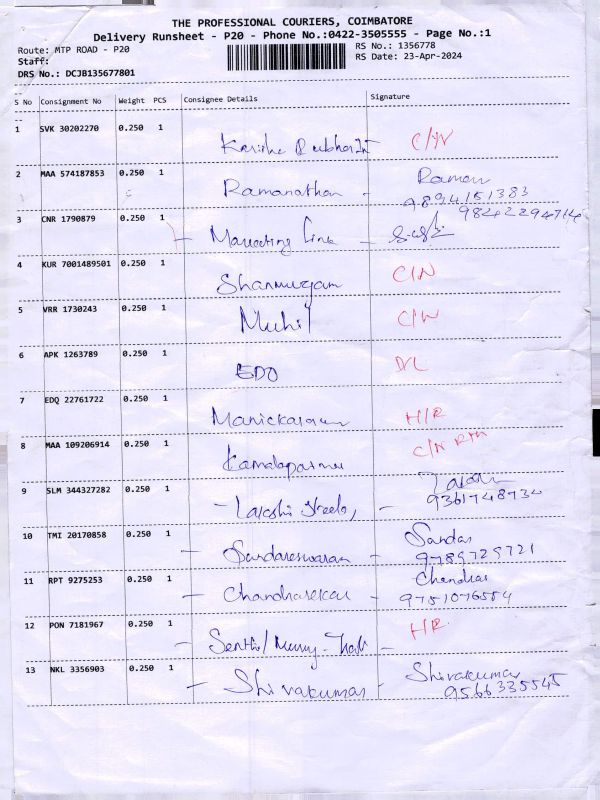 THE PROFESSIONAL COURIERS, COIMBATORE
Delivery Runsheet - P20 - Phone No.:0422-3505555 - Page No.:1
Route: MTP ROAD - P20 RS No.: 1356778
Staff: RS Date: 23-Apr-2024
DRS No.: DCJB135677801
S No Consignment No Weight PCS Consignee Details Signature
1 SVK 30202270 0.250 1 C/N
2 MAA 574187853 0.250 1 Ramanathan - Raman
9894151383
9842294714
3 CNR 1790879 0.250 1 - Marketing Line -
4 KUR 7001489501 0.250 1 Shanmugam C/N
5 VRR 1730243 0.250 1 Muhil C/N
6 APK 1263789 0.250 1 EDO D/L
7 EDQ 22761722 0.250 1 Manickaram H/R
8 MAA 109206914 0.250 1 C/N
9 SLM 344327282 0.250 1 - Steels, -
9361748730
10 TMI 20170858 0.250 1 - Sundareswaran - Sundar
9789729721
11 RPT 9275253 0.250 1 - Chandrasekar - Chandras
9751076554
12 PON 7181967 0.250 1 - Senthil - HR
13 NKL 3356903 0.250 1 - Shivakumar - Shivakumar
9566335545